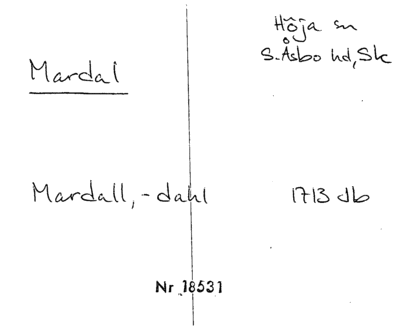 Höja sn
S. Åsbo hd, Sk
Mardal
Mardall, -dahl 1713 db
Nr 18531